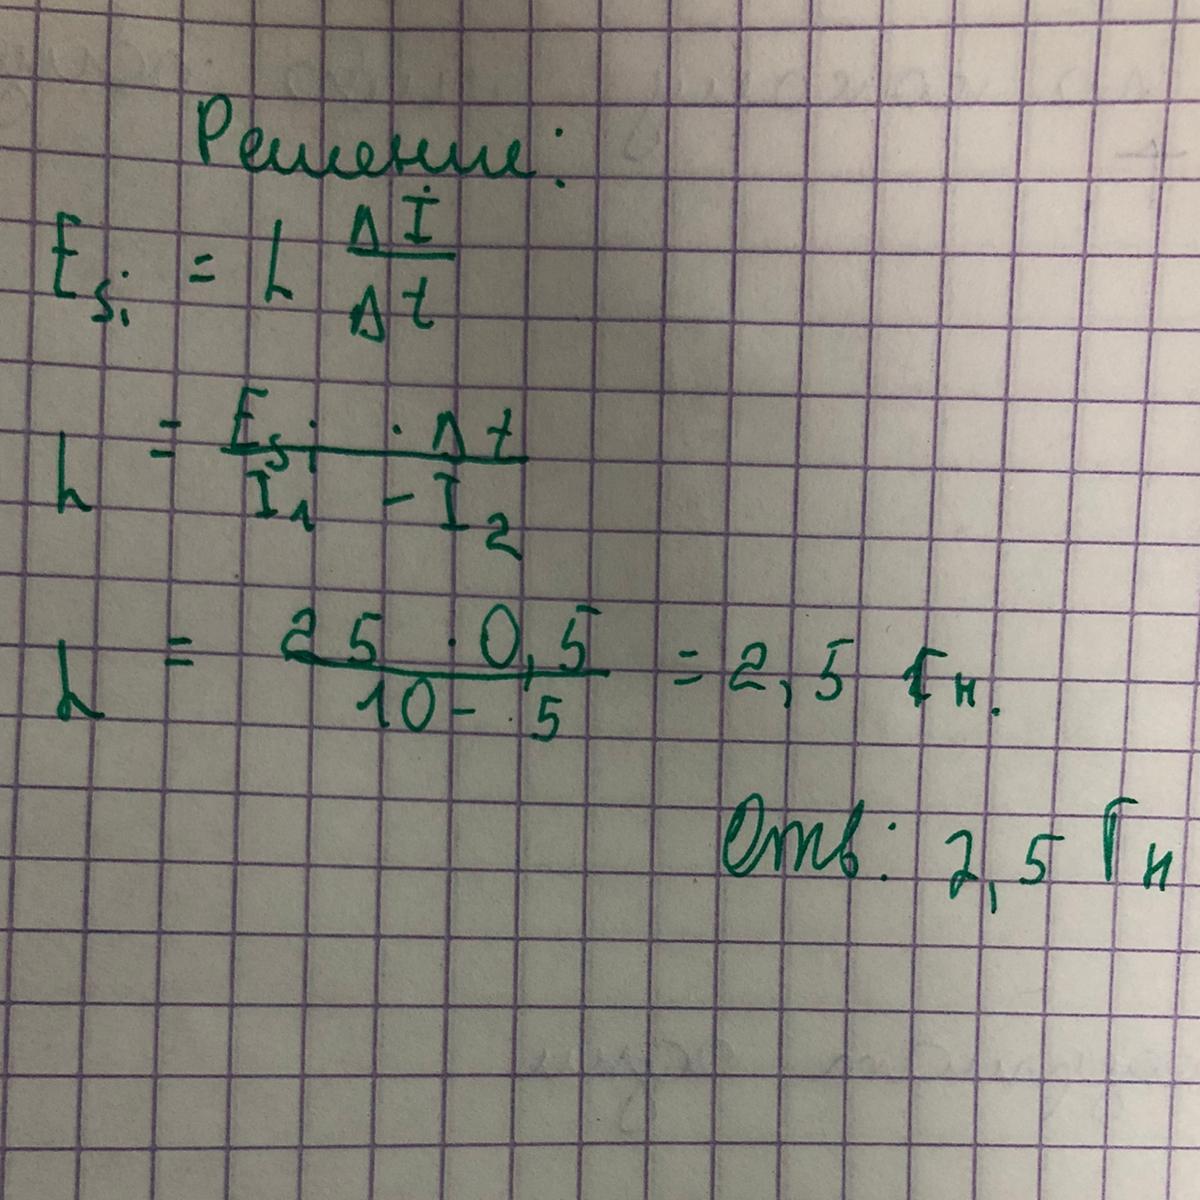 Решение:
E si = L ΔI / Δt
L = E si · Δt / I1 - I2
L = 25 · 0,5 / 10 - 5 = 2,5 Гн.
Отв: 2,5 Гн